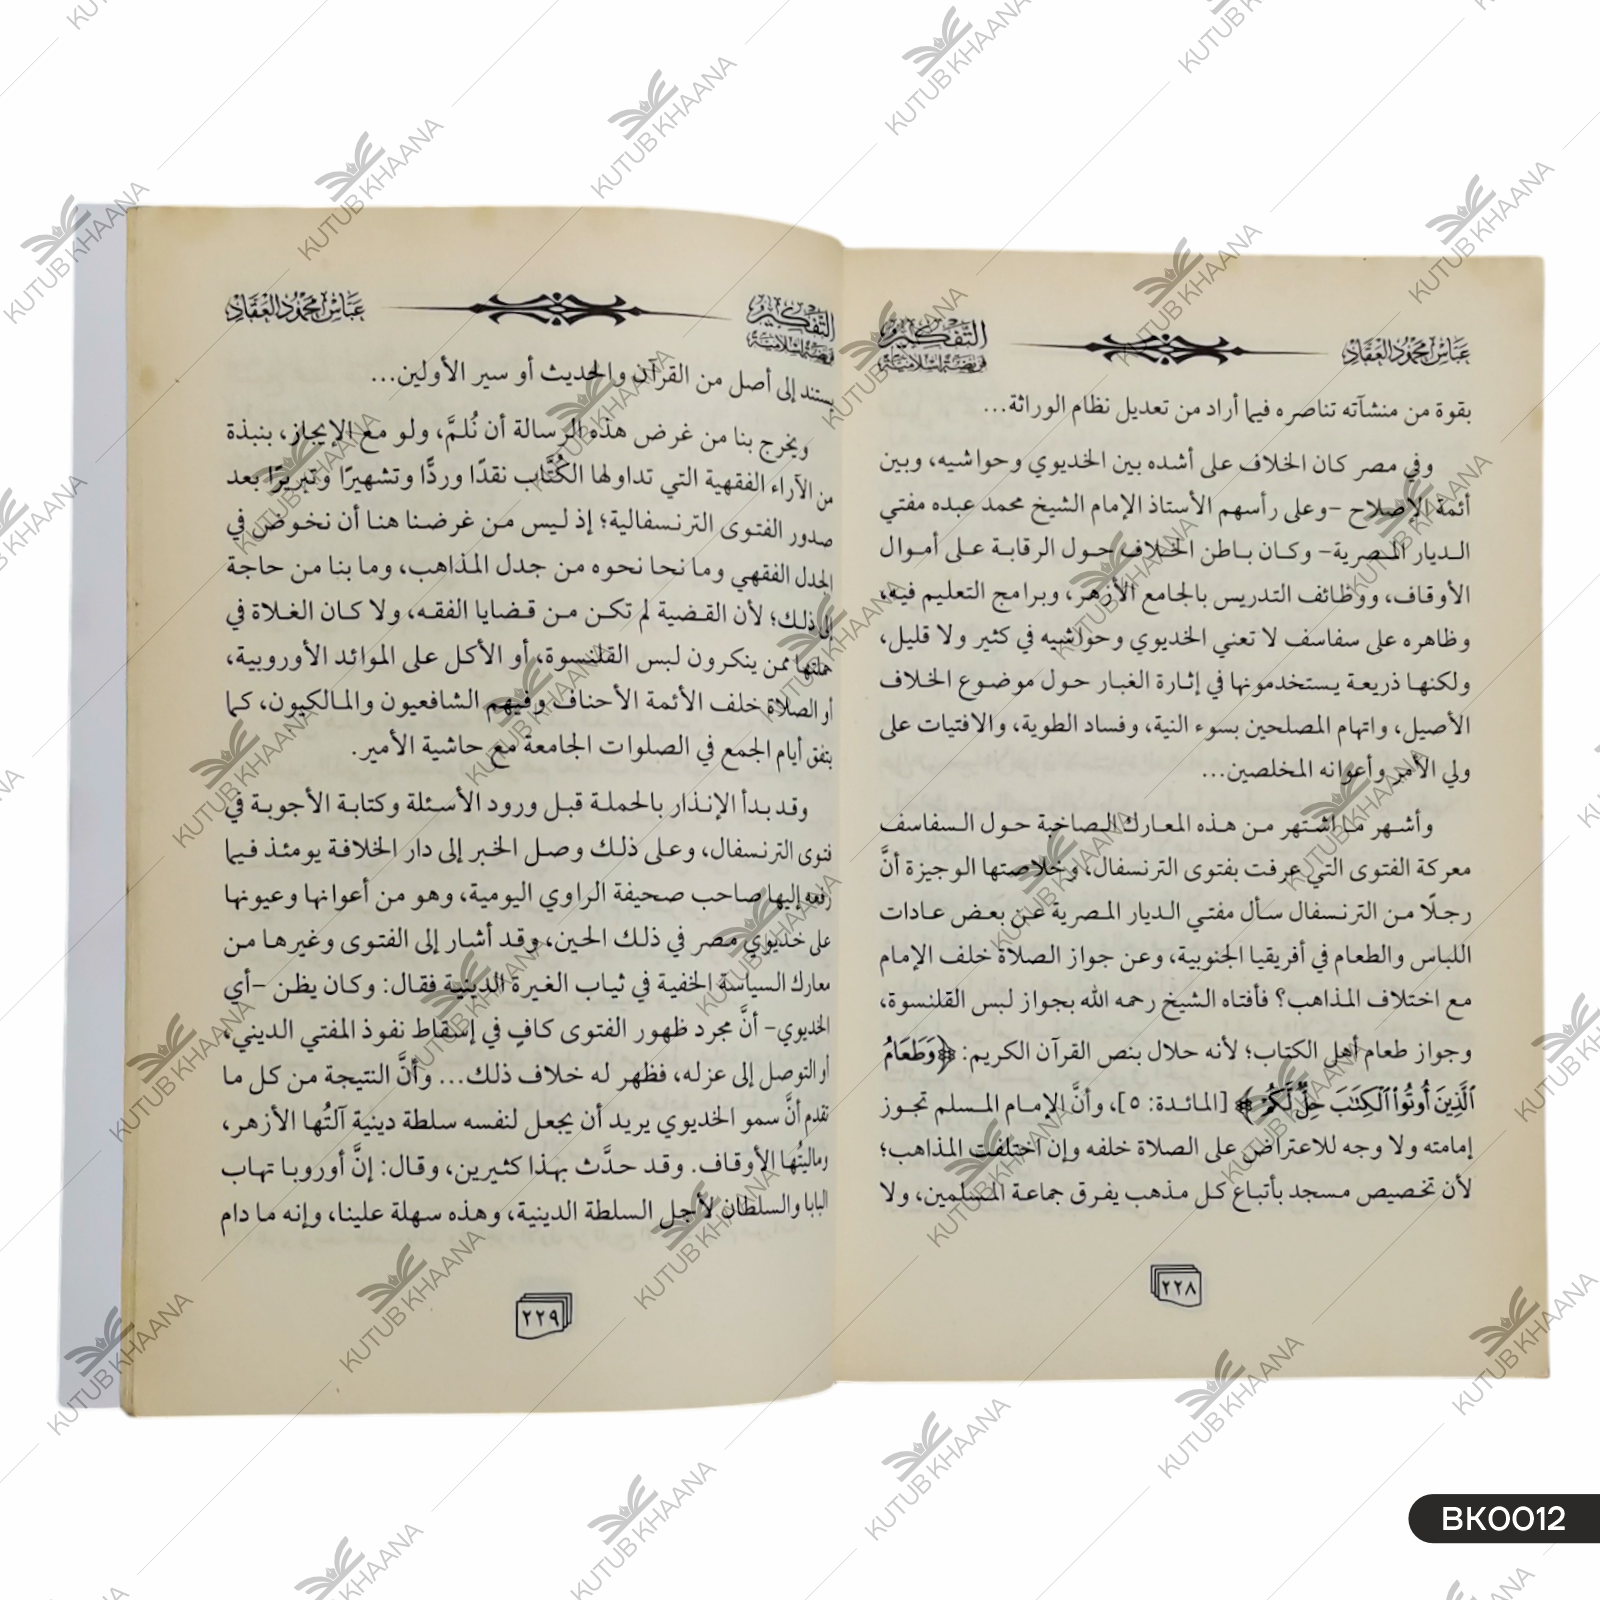 عباس محمود العقاد
التفكير
فريضة إسلامية
بقوة من منشآته تناصره فيما أراد من تعديل نظام الوراثة...
وفي مصر كان الخلاف على أشده بين الخديوي وحواشيه، وبين
أئمة الإصلاح –وعلى رأسهم الأستاذ الإمام الشيخ محمد عبده مفتي
الديار المصرية– وكان باطن الخلاف حول الرقابة على أموال
الأوقاف، ووظائف التدريس بالجامع الأزهر، وبرامج التعليم فيه،
وظاهره على سفاسف لا تعني الخديوي وحواشيه في كثير ولا قليل،
ولكنها ذريعة يستخدمونها في إثارة الغبار حول موضوع الخلاف
الأصيل، واتهام المصلحين بسوء النية، وفساد الطوية، والافتيات على
ولي الأمر وأعوانه المخلصين...
وأشهر ما اشتهر من هذه المعارك الصاخبة حول السفاسف
معركة الفتوى التي عرفت بفتوى الترنسفال، وخلاصتها الوجيزة أنَّ
رجلًا من الترنسفال سأل مفتي الديار المصرية عن بعض عادات
اللباس والطعام في أفريقيا الجنوبية، وعن جواز الصلاة خلف الإمام
مع اختلاف المذاهب؟ فأفتاه الشيخ رحمه الله بجواز لبس القلنسوة،
وجواز طعام أهل الكتاب؛ لأنه حلال بنص القرآن الكريم: ﴿وَطَعَامُ
ٱلَّذِينَ أُوتُوا۟ ٱلْكِتَٰبَ حِلٌّ لَّكُمْ﴾ [المائدة: ٥]، وأنَّ الإمام المسلم تجوز
إمامته ولا وجه للاعتراض على الصلاة خلفه وإن اختلفت المذاهب؛
لأن تخصيص مسجد بأتباع كل مذهب يفرق جماعة المسلمين، ولا
٢٢٨
التفكير
فريضة إسلامية
عباس محمود العقاد
يستند إلى أصل من القرآن والحديث أو سير الأولين...
ويخرج بنا من غرض هذه الرسالة أن نُلمَّ، ولو مع الإيجاز، بنبذة
من الآراء الفقهية التي تداولها الكُتَّاب نقدًا وردًّا وتشهيرًا وتبريرًا بعد
صدور الفتوى الترنسفالية؛ إذ ليس من غرضنا هنا أن نخوض في
الجدل الفقهي وما نحا نحوه من جدل المذاهب، وما بنا من حاجة
إلى ذلك؛ لأن القضية لم تكن من قضايا الفقه، ولا كان الغلاة في
حملتها ممن ينكرون لبس القلنسوة، أو الأكل على الموائد الأوروبية،
أو الصلاة خلف الأئمة الأحناف وفيهم الشافعيون والمالكيون، كما
يتفق أيام الجمع في الصلوات الجامعة مع حاشية الأمير.
وقد بدأ الإنذار بالحملة قبل ورود الأسئلة وكتابة الأجوبة في
فتوى الترنسفال، وعلى ذلك وصل الخبر إلى دار الخلافة يومئذ فيما
رفعه إليها صاحب صحيفة الراوي اليومية، وهو من أعوانها وعيونها
على خديوي مصر في ذلك الحين، وقد أشار إلى الفتوى وغيرها من
معارك السياسة الخفية في ثياب الغيرة الدينية فقال: وكان يظن –أي
الخديوي– أنَّ مجرد ظهور الفتوى كافٍ في إسقاط نفوذ المفتي الديني،
أو التوصل إلى عزله، فظهر له خلاف ذلك... وأنَّ النتيجة من كل ما
تقدم أنَّ سمو الخديوي يريد أن يجعل لنفسه سلطة دينية آلتُها الأزهر،
وماليتُها الأوقاف. وقد حدَّث بهذا كثيرين، وقال: إنَّ أوروبا تهاب
البابا والسلطان لأجل السلطة الدينية، وهذه سهلة علينا، وإنه ما دام
٢٢٩
KUTUB KHAANA
BK0012